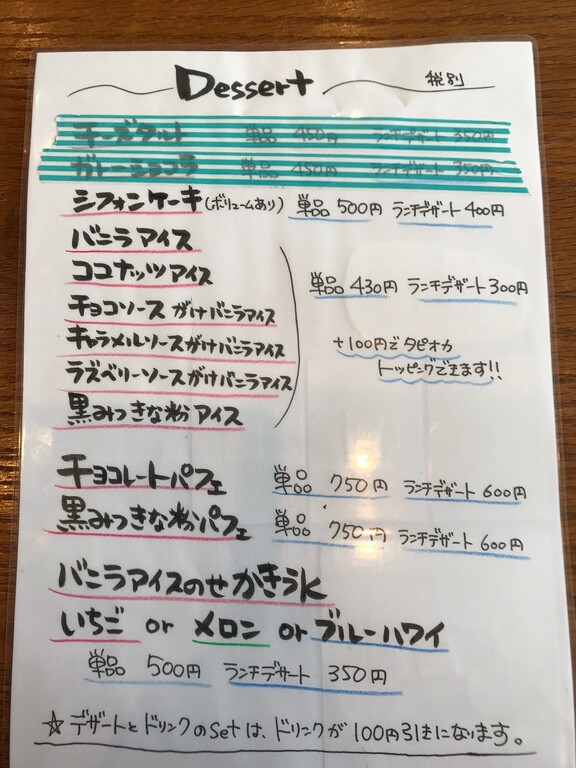 Dessert 税別
チーズタルト 単品 450円 ランチデザート 350円
ガトーショコラ 単品 450円 ランチデザート 350円
シフォンケーキ(ボリュームあり) 単品 500円 ランチデザート 400円
バニラアイス
ココナッツアイス
単品 430円 ランチデザート 300円
チョコソースがけバニラアイス
キャラメルソースがけバニラアイス
+100円でタピオカ
トッピングできます!!
ラズベリーソースがけバニラアイス
黒みつきな粉アイス
チョコレートパフェ 単品 750円 ランチデザート 600円
黒みつきな粉パフェ 単品 750円 ランチデザート 600円
バニラアイスのせかき氷
いちご or メロン or ブルーハワイ
単品 500円 ランチデザート 350円
☆デザートとドリンクのsetは、ドリンクが100円引きになります。